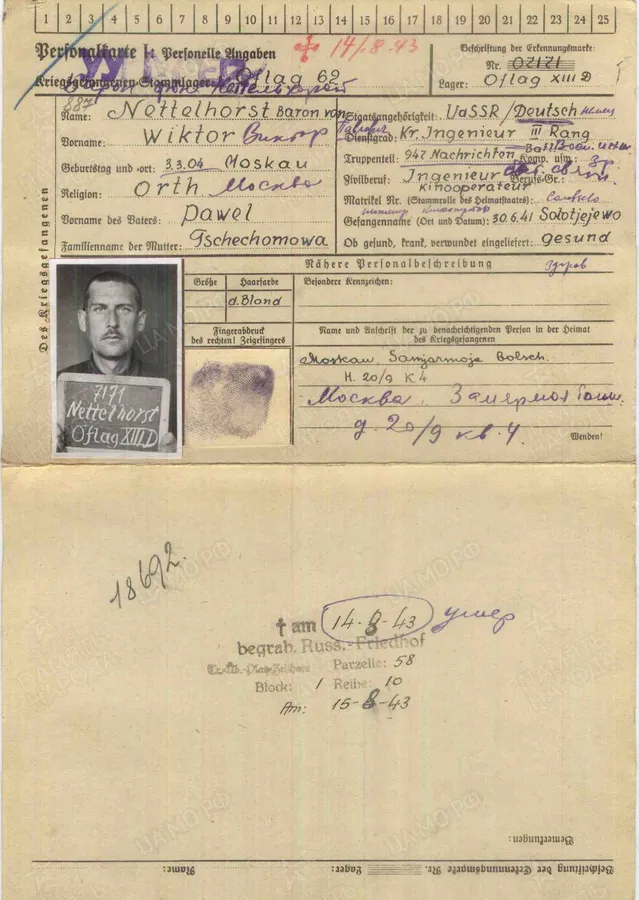 1 2 3 4 5 6 7 8 9 10 11 12 13 14 15 16 17 18 19 20 21 22 23 24 25
Personalkarte I: Personelle Angaben
✝ 14/.8.43
Beschriftung der Erkennungsmarke:
Nr. 07171
Kriegsgefangenen-Stammlager: Oflag 62
Lager: Oflag XIII D
Des Kriegsgefangenen
Name: Nettelhorst Baron von
Staatsangehörigkeit: UdSSR/Deutsch
Vorname: Wiktor Виктор Павлович
Dienstgrad: Kr. Ingenieur III Rang
Truppenteil: 947 Nachrichten Batl. Komp. usw.:
Geburtstag und -ort: 3.3.04 Moskau
Zivilberuf: Ingenieur Berufs-Gr.:
kinooperateur
Religion: Orth Москва
Matrikel Nr. (Stammrolle des Heimatstaates):
Vorname des Vaters: Pawel
Gefangennahme (Ort und Datum): 30.6.41 Solotjejewo
Familienname der Mutter: Tschechomowa
Ob gesund, krank, verwundet eingeliefert: gesund
здоров
Nähere Personalbeschreibung
Größe Haarfarbe
d. Blond
Besondere Kennzeichen:
Fingerabdruck
des rechten! Zeigefingers
Name und Anschrift der zu benachrichtigenden Person in der Heimat
des Kriegsgefangenen
Moskau Samjarmoja Bolsch.
H. 20/9 K 4
Москва.
д. 20/9 кв. 4.
Wenden!
7171
Nettelhorst
Oflag XIII D
18692.
✝ am 14-8-43 умер
begrab. Russ.-Friedhof
Parzelle: 58
Block: 1 Reihe: 10
Am: 15-8-43
Bemerkungen:
Beschriftung der Erkennungsmarke Nr. Lager: Name:
ЦАМО РФ